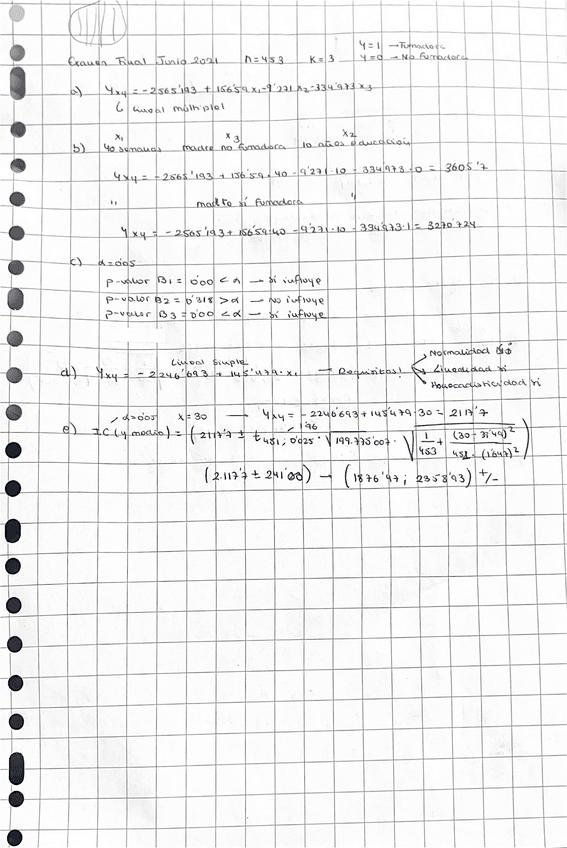 Examen Final Junio 2021 n=453 K=3 Y=1 → Fumadora
Y=0 → No Fumadora
a) Yxy = -2565'193 + 156'59 x1 - 9'271 x2 - 334'973 x3
↳ Lineal múltiple!
x1 x3 x2
b) 40 semanas madre no fumadora 10 años educación
Yxy = -2565'193 + 156'59 · 40 - 9'271 · 10 - 334'973 · 0 = 3605'7
" madre sí fumadora "
Yxy = -2565'193 + 156'59·40 - 9'271·10 - 334'973·1 = 3270'724
c) α=0'05
p-valor B1 = 0'00 < α → sí influye
p-valor B2 = 0'318 > α → no influye
p-valor B3 = 0'00 < α → sí influye
Lineal Simple
d) Yxy = -2246'693 + 145'479 · x1 → Requisitos!
Normalidad
Linealidad sí
Homocedasticidad sí
α=0'05 x=30 → Yxy = -2246'693 + 145'479·30 = 2117'7
1'96
e) IC (y medio) = (2117'7 ± t 451; 0'025 · √199.775'007 · √1/453 + (30 - 39'49)²/452 · (1'647)²)
(2.117'7 ± 241'00) → (1876'97; 2358'93) +/-